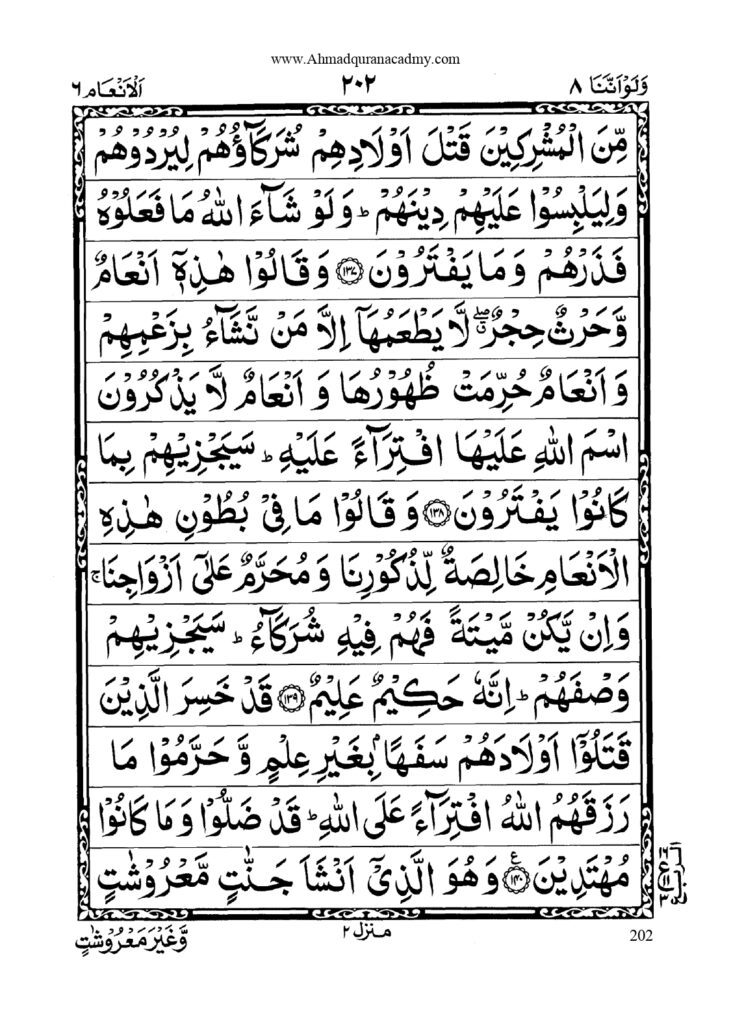 www.Ahmadquranacadmy.com
وَلَوْاَنَّنَا ٨ ٢٠٢ اَلْاَنْعَام ٦
مِّنَ الْمُشْرِكِيْنَ قَتْلَ اَوْلَادِهِمْ شُرَكَآؤُهُمْ لِيُرْدُوْهُمْ
وَلِيَلْبِسُوْا عَلَيْهِمْ دِيْنَهُمْ ؕ وَلَوْ شَآءَ اللّٰهُ مَا فَعَلُوْهُ
فَذَرْهُمْ وَمَا يَفْتَرُوْنَ ﴿١٣٧﴾ وَقَالُوْا هٰذِهٖۤ اَنْعَامٌ
وَّحَرْثٌ حِجْرٌ ۖۗ لَّا يَطْعَمُهَاۤ اِلَّا مَنْ نَّشَآءُ بِزَعْمِهِمْ
وَاَنْعَامٌ حُرِّمَتْ ظُهُوْرُهَا وَاَنْعَامٌ لَّا يَذْكُرُوْنَ
اسْمَ اللّٰهِ عَلَيْهَا افْتِرَآءً عَلَيْهِ ؕ سَيَجْزِيْهِمْ بِمَا
كَانُوْا يَفْتَرُوْنَ ﴿١٣٨﴾ وَقَالُوْا مَا فِيْ بُطُوْنِ هٰذِهِ
الْاَنْعَامِ خَالِصَةٌ لِّذُكُوْرِنَا وَمُحَرَّمٌ عَلٰۤى اَزْوَاجِنَا ۚ
وَاِنْ يَّكُنْ مَّيْتَةً فَهُمْ فِيْهِ شُرَكَآءُ ؕ سَيَجْزِيْهِمْ
وَصْفَهُمْ ؕ اِنَّهٗ حَكِيْمٌ عَلِيْمٌ ﴿١٣٩﴾ قَدْ خَسِرَ الَّذِيْنَ
قَتَلُوْۤا اَوْلَادَهُمْ سَفَهًۢا بِغَيْرِ عِلْمٍ وَّحَرَّمُوْا مَا
رَزَقَهُمُ اللّٰهُ افْتِرَآءً عَلَى اللّٰهِ ؕ قَدْ ضَلُّوْا وَمَا كَانُوْا
مُهْتَدِيْنَ ﴿١٤٠﴾ ع وَهُوَ الَّذِيْۤ اَنْشَاَ جَنّٰتٍ مَّعْرُوْشٰتٍ
منزل ٢
وَّغَيْرَ مَعْرُوْشٰتٍ
202